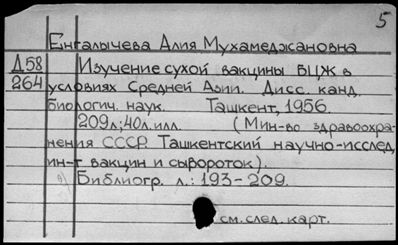 5
Енгалычева Алия Мухамеджановна
Д58 Изучение сухой вакцины БЦЖ в
264 условиях Средней Азии. Дисс. канд.
биологич. наук. Ташкент, 1956.
209л; 40л. илл. (Мин-во здравоохра-
нения СССР. Ташкентский научно-исслед.
ин-т вакцин и сывороток).
Библиогр. л.: 193-209.
см. след. карт.